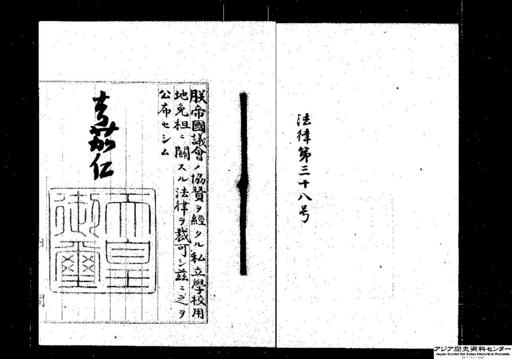 法律第三十八号
朕帝國議會ノ協賛ヲ經タル私立學校用
地免租ニ關スル法律ヲ裁可シ茲ニ之ヲ
公布セシム
嘉仁
天皇
御璽
アジア歴史資料センター
Japan Center for Asian Historical Records